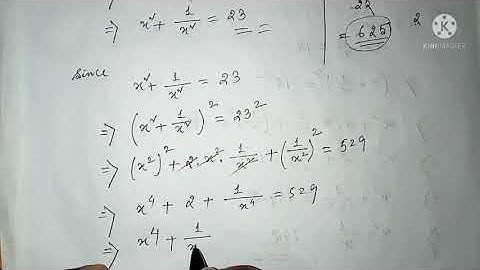 ⇒ x² + 1/x² = 23
= 625
2
KINEMASTER
Since x² + 1/x² = 23
⇒ (x² + 1/x²)² = 23²
⇒ (x²)² + 2·x²·1/x² + (1/x²)² = 529
⇒ x⁴ + 2 + 1/x⁴ = 529
⇒ x⁴ + 1/x